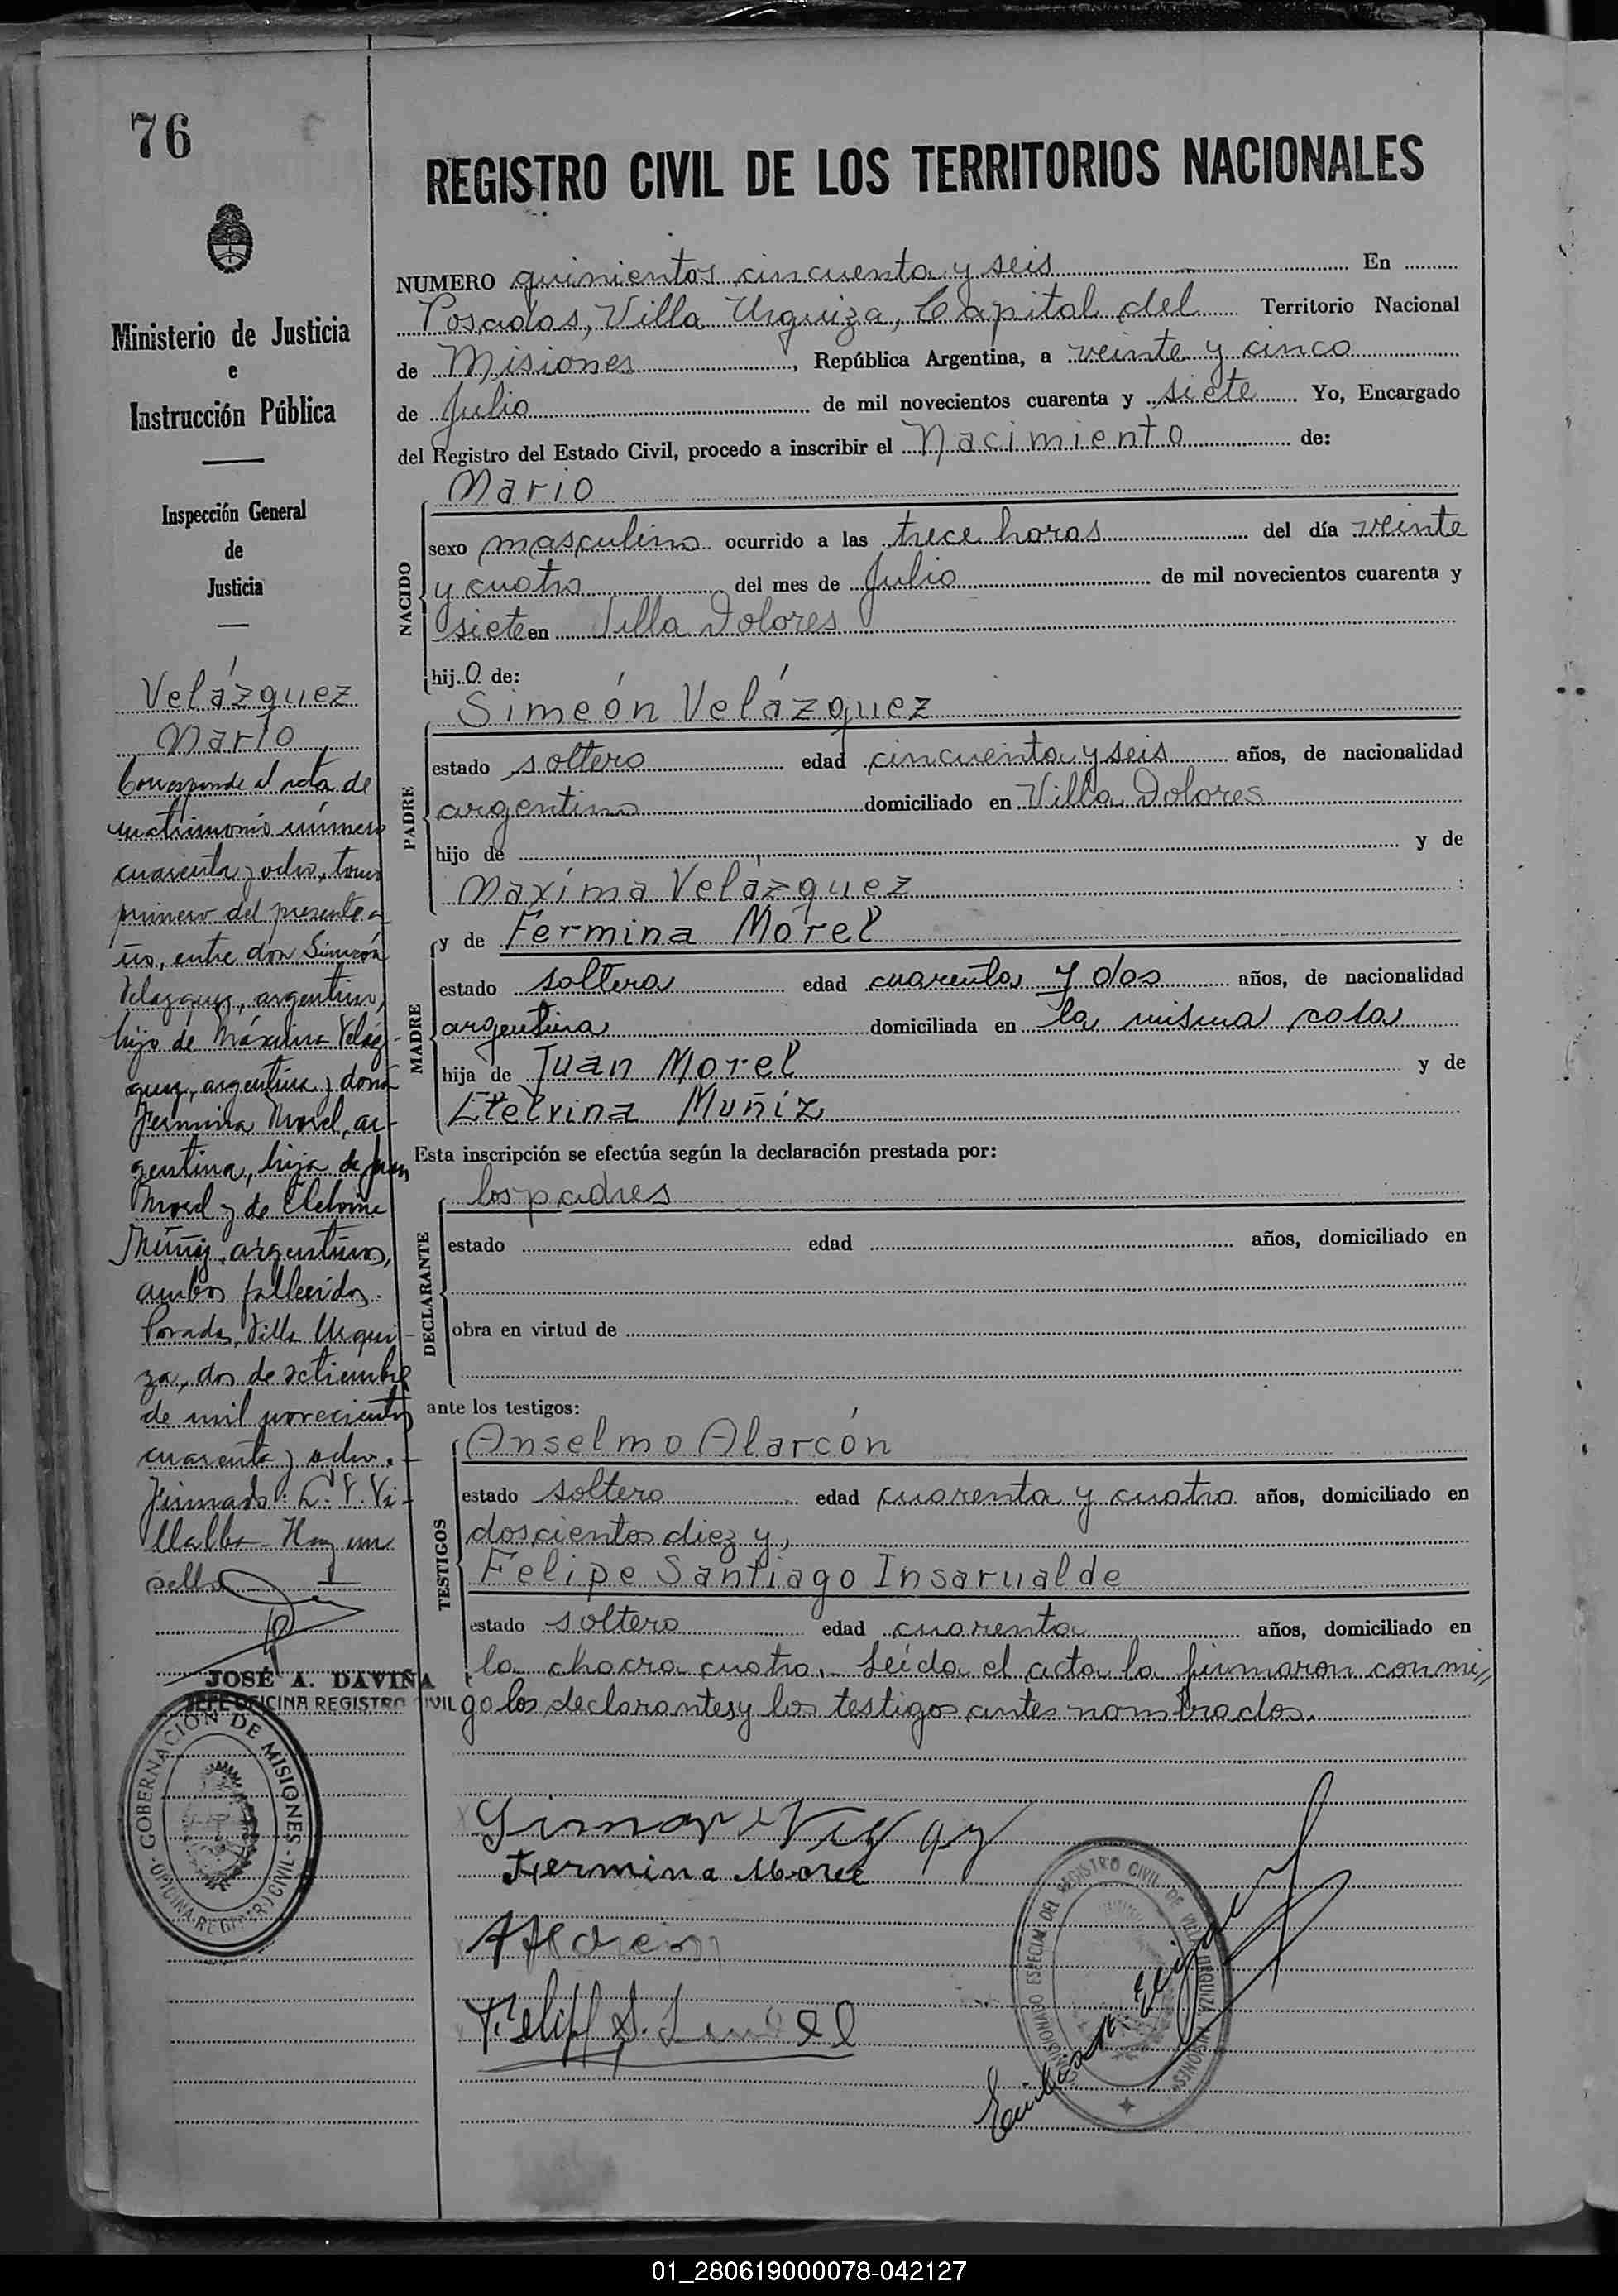 76
Ministerio de Justicia
e
Instrucción Pública
Inspección General
de
Justicia
Velázquez
Mario
Corresponde el acta de
matrimonio número
cuarenta y ocho, tomo
primero del presente a
ño, entre don Simeón
Velazquez, argentino,
hijo de Máxima Veláz-
quez, argentina y doña
Fermina Morel, ar-
gentina, hija de Juan
Morel y de Etelvina
Muñiz, argentinos,
ambos fallecidos.
Posadas, Villa Urqui-
za, dos de setiembre
de mil novecientos
cuarenta y ocho.-
Firmado: L. V. Vi-
llalba - Hay un
sello
JOSÉ A. DAVIÑA
JEFE OFICINA REGISTRO CIVIL
GOBERNACIÓN DE MISIONES - OFICINA REGISTRO CIVIL -
REGISTRO CIVIL DE LOS TERRITORIOS NACIONALES
NUMERO quinientos cincuenta y seis En
Posadas, Villa Urquiza, Capital del Territorio Nacional
de Misiones, República Argentina, a veinte y cinco
de Julio de mil novecientos cuarenta y siete Yo, Encargado
del Registro del Estado Civil, procedo a inscribir el Nacimiento de:
NACIDO
Mario
sexo masculino ocurrido a las trece horas del día veinte
y cuatro del mes de Julio de mil novecientos cuarenta y
siete en Villa Dolores
hijo de:
PADRE
Simeón Velázquez
estado soltero edad cincuenta y seis años, de nacionalidad
argentino domiciliado en Villa Dolores
hijo de y de
Maxima Velázquez :
MADRE
y de Fermina Morel
estado soltera edad cuarenta y dos años, de nacionalidad
argentina domiciliada en la misma casa
hija de Juan Morel y de
Etelvina Muñiz
Esta inscripción se efectúa según la declaración prestada por:
DECLARANTE
los padres
estado edad años, domiciliado en
obra en virtud de
ante los testigos:
TESTIGOS
Anselmo Alarcón
estado soltero edad cuarenta y cuatro años, domiciliado en
doscientos diez y,
Felipe Santiago Insarualde
estado soltero edad cuarenta años, domiciliado en
la chacra cuatro.- Leída el acta la firmaron conmi//
go los declarantes y los testigos antes nombrados.
Fermina Morel
COMISIONADO ESPECIAL DEL REGISTRO CIVIL DE VILLA URQUIZA MISIONES
01_280619000078-042127